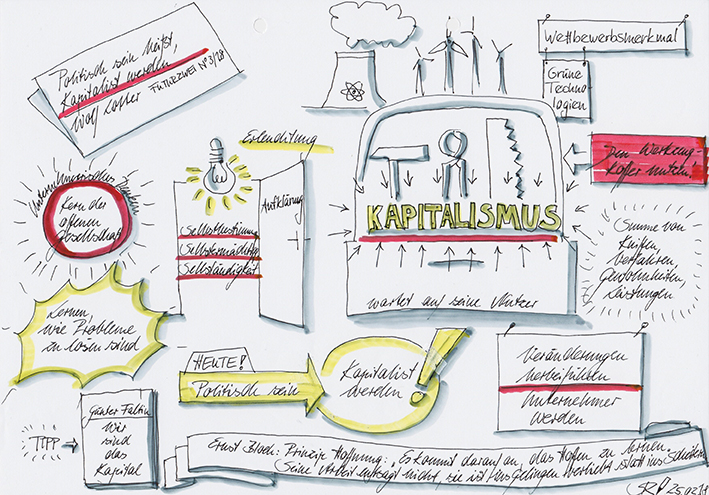 Politisch sein heißt,
Kapitalist werden
Wolf Lotter FUTURZWEI N°3/28
Wettbewerbsmerkmal
Grüne
Techno-
logien
Erleuchtung
Den Werkzeug-
koffer nutzen.
Unternehmerisches
Kern der
offenen
Gesellschaft
Aufklärung
Selbstbestimmung
Selbstermächtig
Selbständigkeit
KAPITALISMUS
wartet auf seine Nutzer
Summe von
Kniffen,
Verfahren,
Gewohnheiten,
Leistungen
Lernen,
wie Probleme
zu lösen sind
HEUTE!
Politisch sein
Kapitalist
werden
Veränderungen
herbeiführen
Unternehmer
werden
TIPP
Günter Faltin
Wir
sind
das
Kapital
Ernst Bloch: Prinzip Hoffnung: „Es kommt darauf an, das Hoffen zu lernen.
Seine Arbeit entsagt nicht, sie ist ins Gelingen verliebt statt ins Scheitern